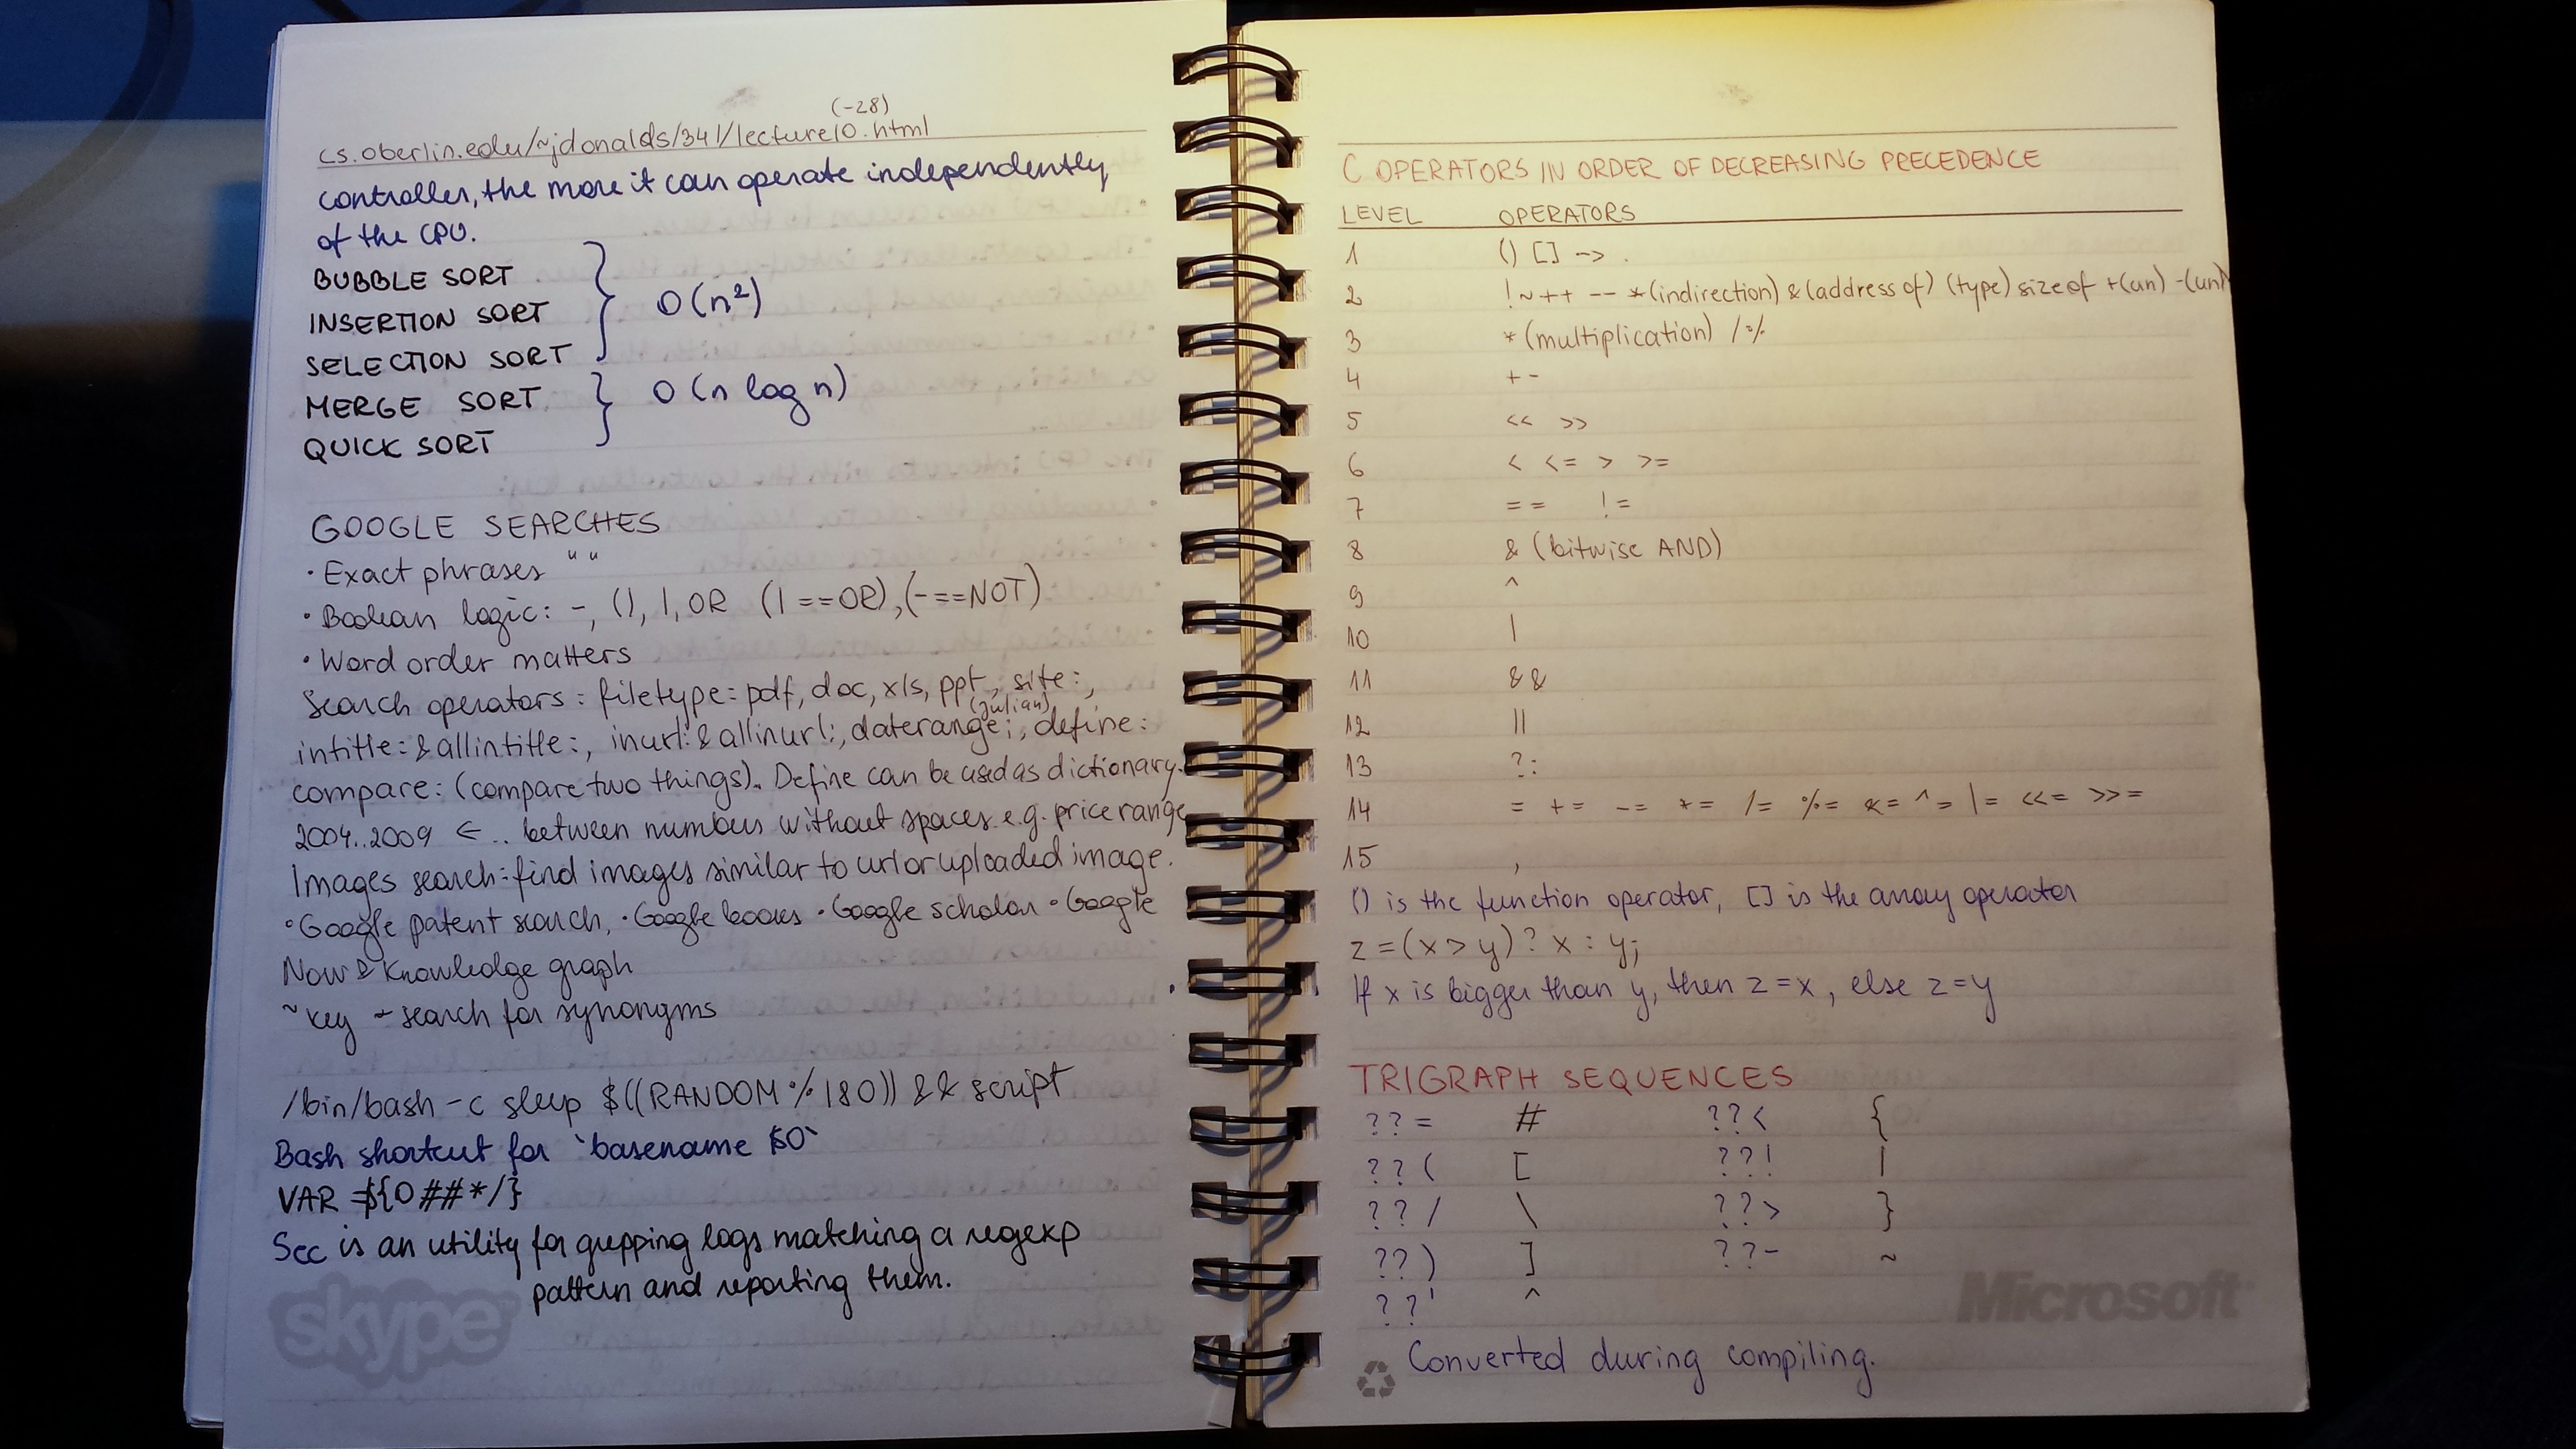 (-28)
cs.oberlin.edu/~jdonalds/341/lecture10.html
controller, the more it can operate independently
of the CPU.
BUBBLE SORT
INSERTION SORT
SELECTION SORT
O(n²)
MERGE SORT
QUICK SORT
O(n log n)
GOOGLE SEARCHES
• Exact phrases " "
• Boolean logic: -, (), |, OR (| == OR), (- == NOT)
• Word order matters
Search operators: filetype: pdf, doc, xls, ppt, site:,
(julian)
intitle: & allintitle:, inurl: & allinurl:, daterange:, define:
compare: (compare two things). Define can be used as dictionary.
2004..2009 ← .. between numbers without spaces e.g. price range
Images search: find images similar to url or uploaded image.
• Google patent search, • Google books • Google scholar • Google
Now & Knowledge graph
~key - search for synonyms
/bin/bash -c sleep $((RANDOM % 180)) && script
Bash shortcut for `basename $0`
VAR=${0##*/}
Sec is an utility for grepping logs matching a regexp
pattern and reporting them.
skype
C OPERATORS IN ORDER OF DECREASING PRECEDENCE
LEVEL OPERATORS
1 () [] -> .
2 ! ~ ++ -- *(indirection) &(address of) (type) sizeof +(un) -(un)
3 *(multiplication) / %
4 + -
5 << >>
6 < <= > >=
7 == !=
8 & (bitwise AND)
9 ^
10 |
11 &&
12 ||
13 ?:
14 = += -= *= /= %= &= ^= |= <<= >>=
15 ,
() is the function operator, [] is the array operator
z = (x > y) ? x : y;
If x is bigger than y, then z=x, else z=y
TRIGRAPH SEQUENCES
??= # ??< {
??( [ ??! |
??/ \ ??> }
??) ] ??- ~
??' ^
Microsoft
Converted during compiling.